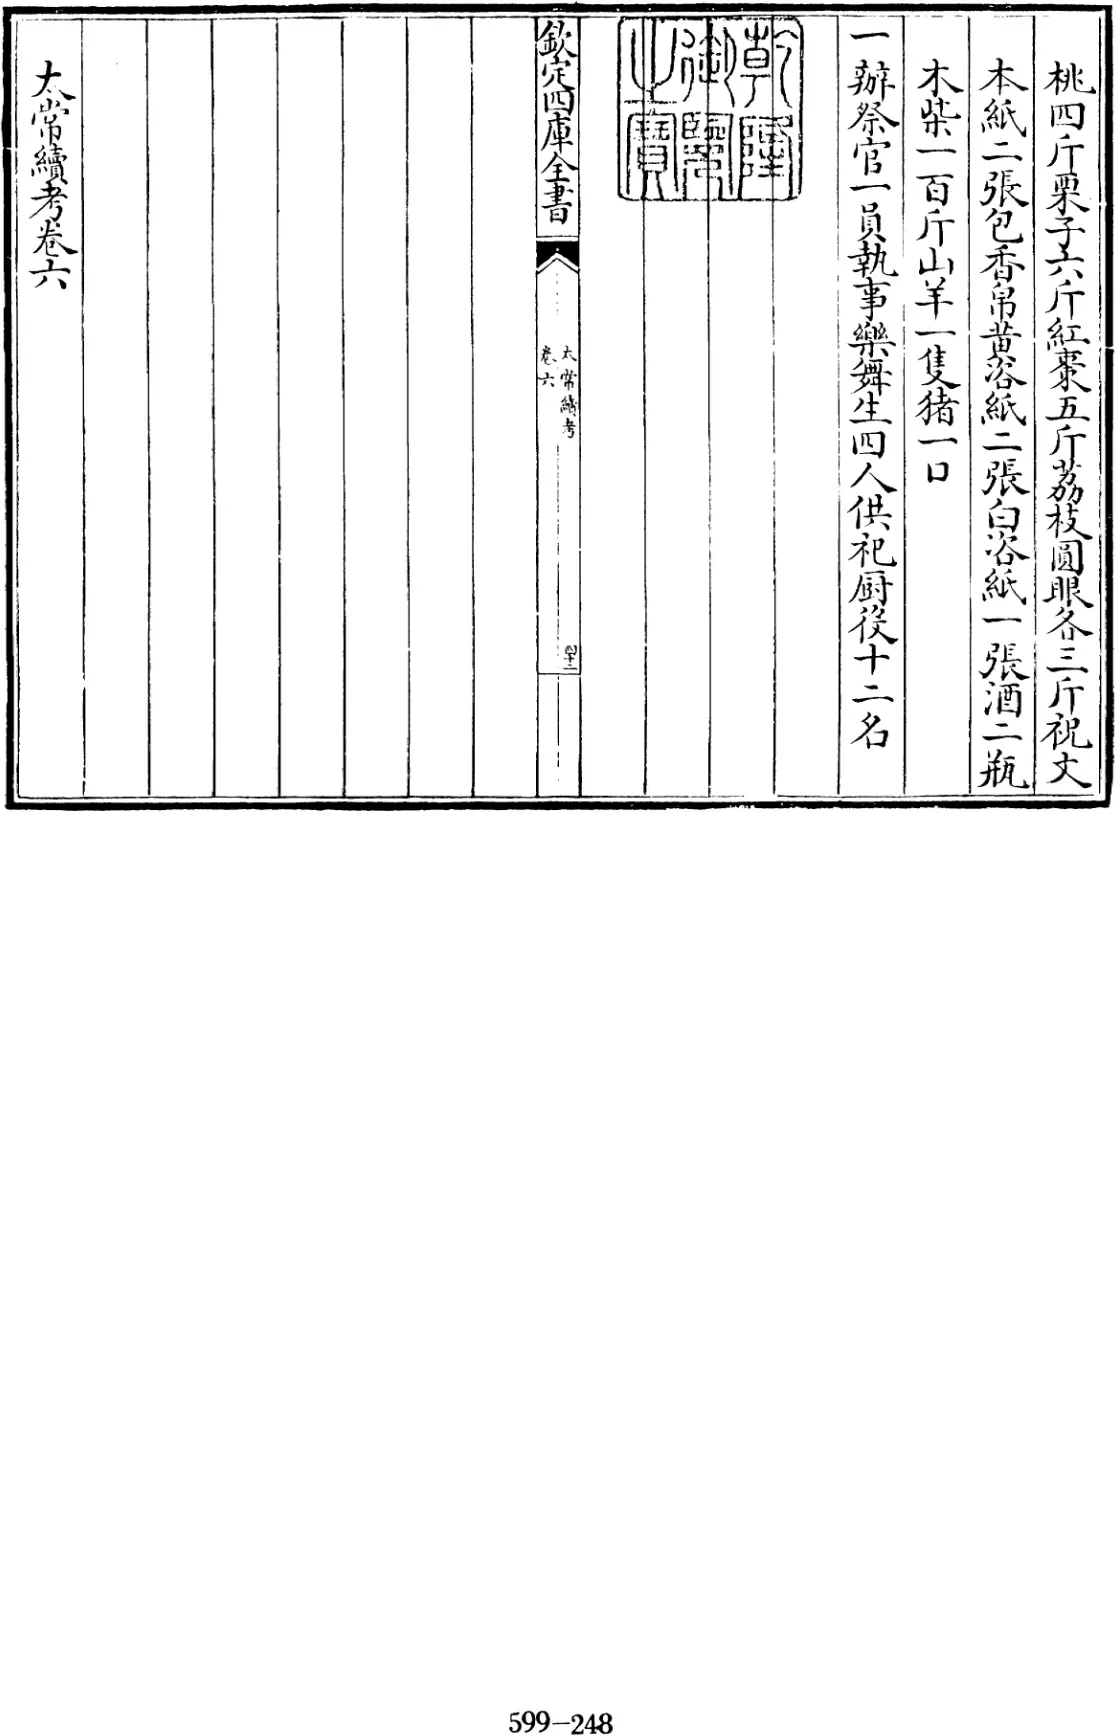 桃四斤栗子六斤紅棗五斤荔枝圓眼各三斤祝文
本紙二張包香帛黄咨紙二張白咨紙一張酒二瓶
木柴一百斤山羊一隻猪一口
一辦祭官一員執事樂舞生四人供祀厨役十二名
乾隆
御覽
之寳
欽定四庫全書
太常續考
卷六
四十二
太常續考卷六
599-248